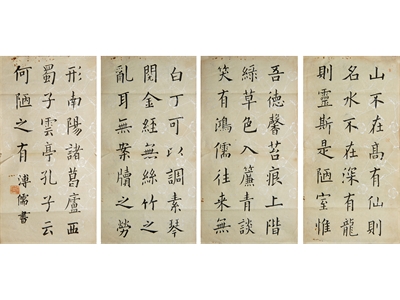 山不在高有仙則
名水不在深有龍
則靈斯是陋室惟
吾德馨苔痕上階
綠草色入簾青談
笑有鴻儒往來無
白丁可以調素琴
閱金經無絲竹之
亂耳無案牘之勞
形南陽諸葛廬西
蜀子雲亭孔子云
何陋之有 溥儒書